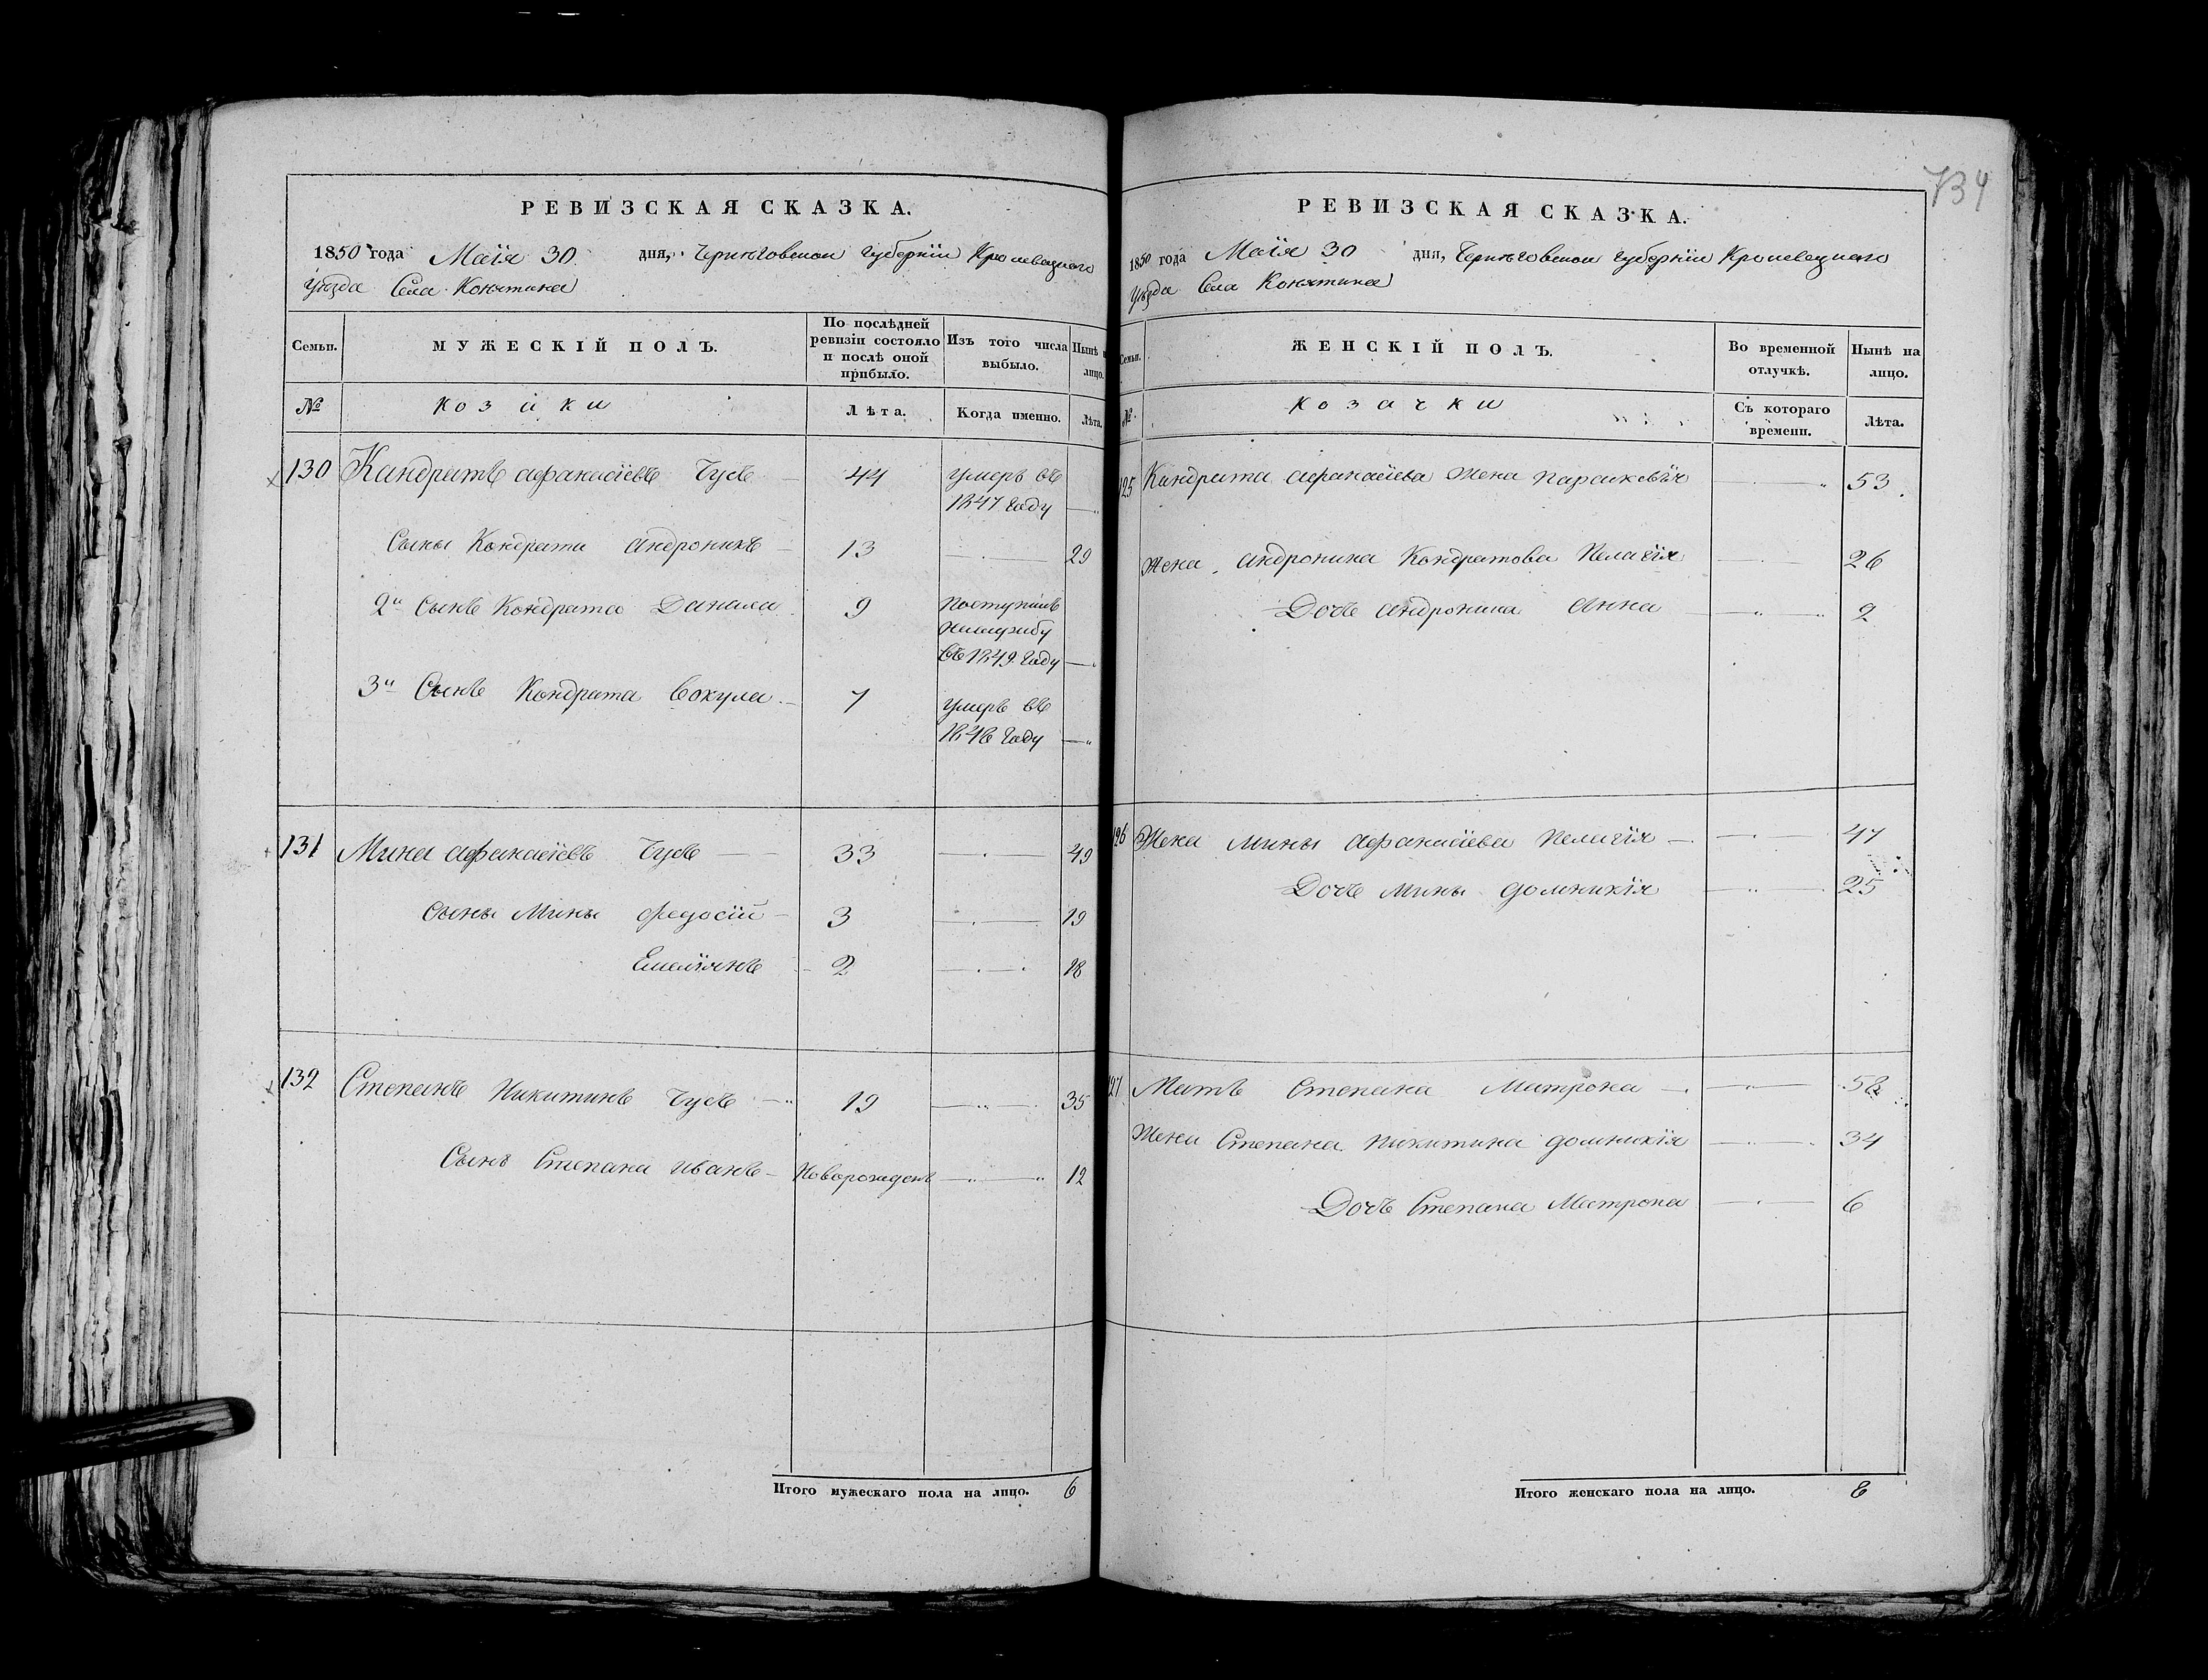 734
РЕВИЗСКАЯ СКАЗКА.
1850 года Маія 30 дня, Черниговской губерніи Кролевецкаго
уѣзда Села Конятина
Семьи. МУЖЕСКІЙ ПОЛЪ. По послѣдней ревизіи состояло и послѣ оной прибыло. Изъ того числа выбыло. Нынѣ на лицо.
№ козаки Лѣта. Когда именно. Лѣта.
130 Кандратъ Афанасіевъ Гусъ 44 умеръ въ
1847 Году
Сыны Кондрата Андроникъ 13 29
2й Сынъ Кондрата Данила 9 поступилъ
въ 1849 Году
3й Сынъ Кондрата Вокула 7 умеръ въ
1848 Году
131 Мина Афанасіевъ Гусъ 33 49
Сыны Мины Федосій 3 19
Емеліянъ 2 18
132 Степанъ Никитинъ Гусъ 19 35
Сынъ Степана Иванъ Новорожденъ 12
Итого мужескаго пола на лицо. 6
РЕВИЗСКАЯ СКАЗКА.
1850 года Маія 30 дня, Черниговской губерніи Кролевецкаго
уѣзда Села Конятина
Семьи. ЖЕНСКІЙ ПОЛЪ. Во временной отлучкѣ. Нынѣ на лицо.
№ козачки Съ котораго времени. Лѣта.
125 Кандрата Афанасіева Жена Парасковія 53
Жена Андроника Кондратова Пелагія 26
Дочь Андроника Анна 2
126 Жена Мины Афанасіева Пелагія 47
Дочь Мины Домникія 25
127 Мать Степана Матрона 58
Жена Степана Никитина Домникія 34
Дочь Степана Матрона 6
Итого женскаго пола на лицо. 8